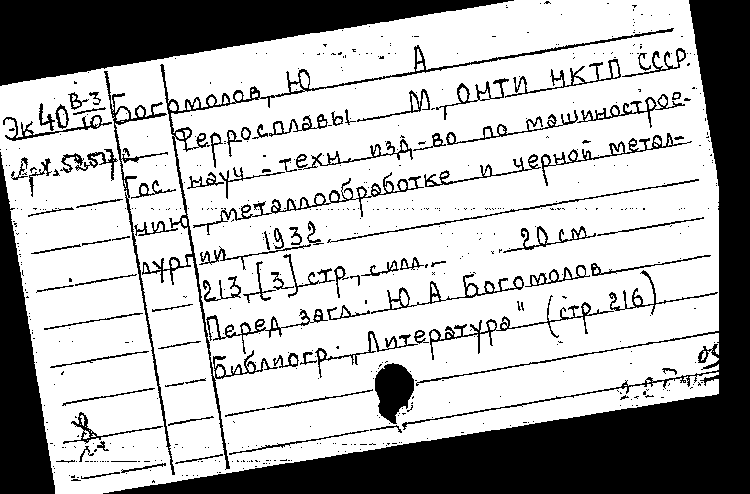 Эк 40 В-3/10 Богомолов, Ю А
Ферросплавы М., ОНТИ НКТП СССР.
Гос. науч.-техн. изд-во по машинострое-
нию, металлообработке и черной метал-
лургии, 1932.
213, [3] стр., с илл. 20 см.
Перед загл.: Ю. А. Богомолов.
Библиогр.: "Литература" (стр. 216)